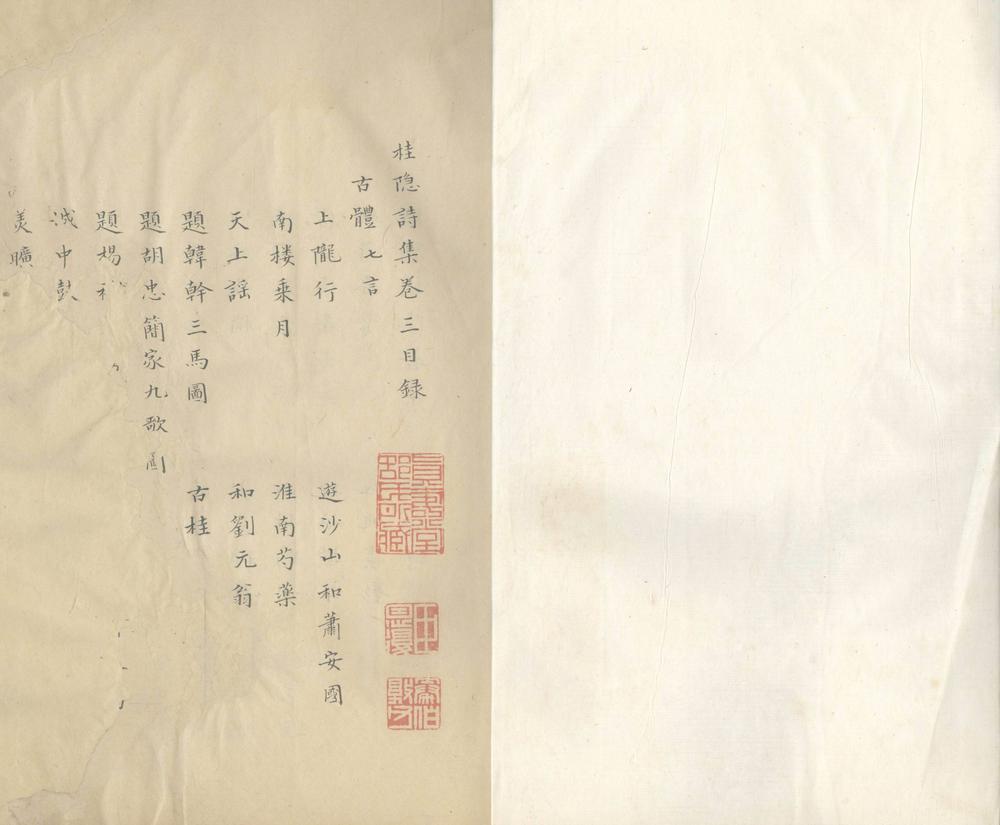 桂隐詩集卷三目録
古體七言
上隴行
遊沙山和蕭安國
南楼乗月
淮南芍薬
天上謡
和劉元翁
題韓幹三馬圖
古桂
題胡忠簡家九歌圖
題楊
中鼓
羙曠
秦伯敦父